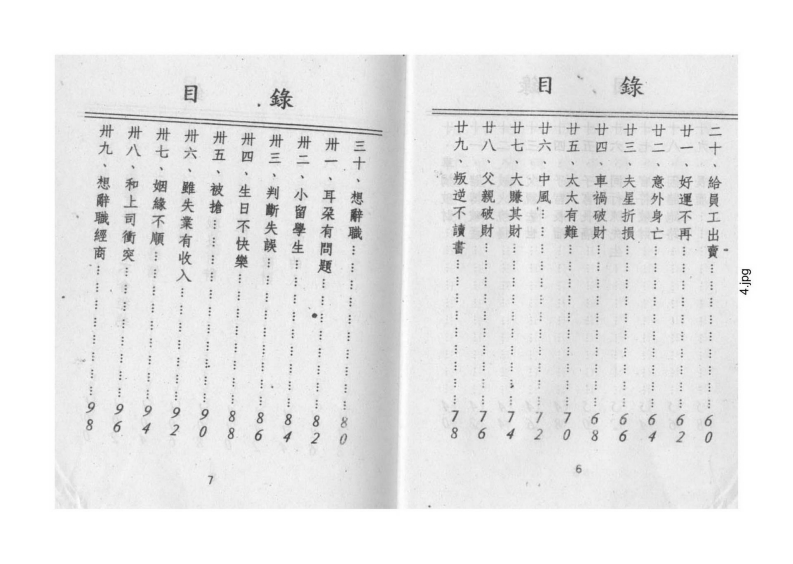 目錄
二十、給員工出賣……………………60
廿一、好運不再……………………62
廿二、意外身亡……………………64
廿三、夫星折損……………………66
廿四、車禍破財……………………68
廿五、太太有難……………………70
廿六、中風……………………72
廿七、大賺其財……………………74
廿八、父親破財……………………76
廿九、叛逆不讀書……………………78
6
目錄
三十、想辭職……………………80
卅一、耳朶有問題……………………82
卅二、小留學生……………………84
卅三、判斷失誤……………………86
卅四、生日不快樂……………………88
卅五、被搶……………………90
卅六、雖失業有收入……………………92
卅七、姻緣不順……………………94
卅八、和上司衝突……………………96
卅九、想辭職經商……………………98
7
4.jpg